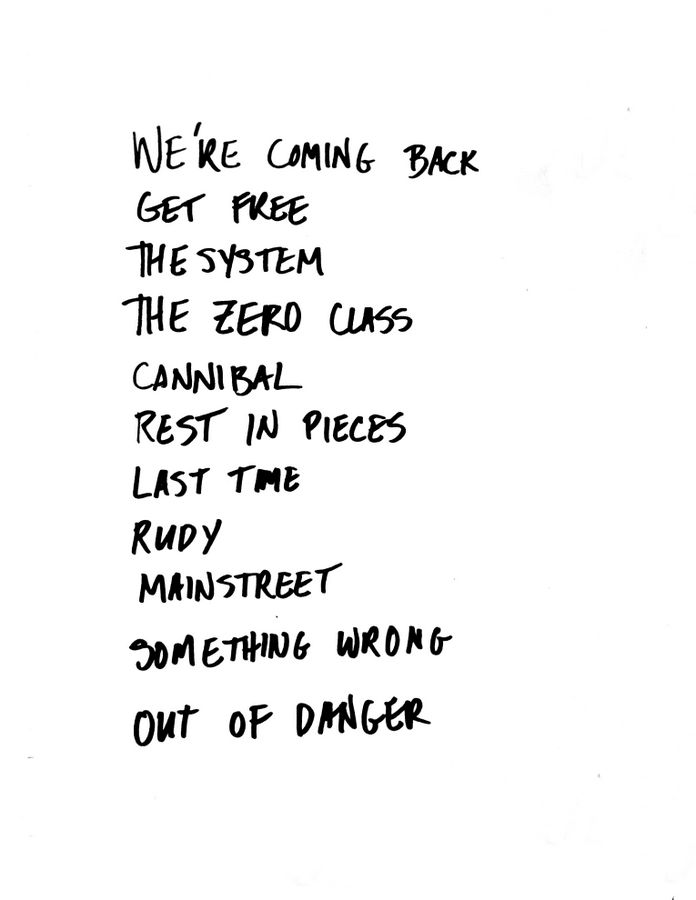 WE'RE COMING BACK
GET FREE
THE SYSTEM
THE ZERO CLASS
CANNIBAL
REST IN PIECES
LAST TIME
RUDY
MAINSTREET
SOMETHING WRONG
OUT OF DANGER